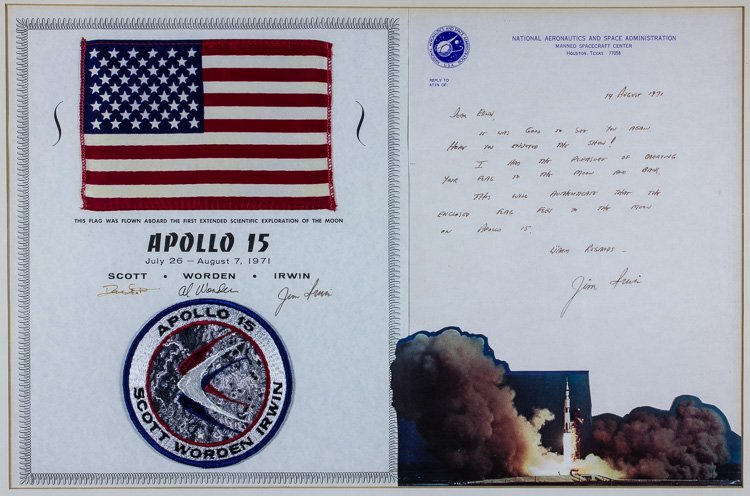 THIS FLAG WAS FLOWN ABOARD THE FIRST EXTENDED SCIENTIFIC EXPLORATION OF THE MOON
APOLLO 15
July 26 — August 7, 1971
SCOTT • WORDEN • IRWIN
Dave Scott Al Worden Jim Irwin
APOLLO 15
SCOTT WORDEN IRWIN
NATIONAL AERONAUTICS AND SPACE ADMINISTRATION
MANNED SPACECRAFT CENTER
HOUSTON, TEXAS 77058
REPLY TO
ATTN OF:
AUGUST
IT WAS GOOD TO SEE YOU AGAIN
HOPE YOU ENJOYED THE SHOW!
I HAD THE PLEASURE OF CARRYING
YOUR FLAG TO THE MOON AND BACK.
THIS WILL AUTHENTICATE THAT THE
ENCLOSED FLAG FLEW TO THE MOON
ON APOLLO 15.
WARM REGARDS –
Jim Irwin